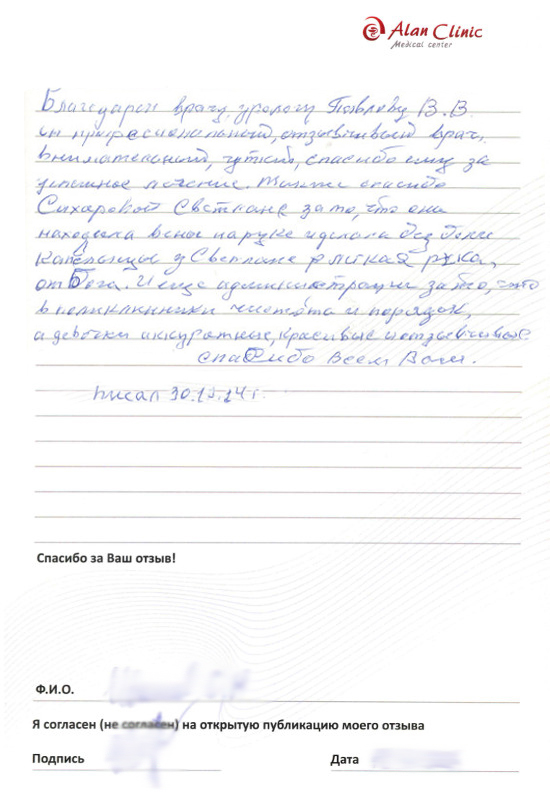 Alan Clinic
Medical center
Благодарен врачу, урологу Павлову В.В.
он професиональный, отзывчивый врач,
внимательный, чуткий, спасибо ему за
успешное лечение. Также спасибо
Сихаровой Светлане за то, что она
находила вены на руке и делала без боли
капельницы у Светланы лёгкая рука,
от Бога. И еще администрации за то, что
в поликлинники чистота и порядок,
а девочки аккуратные, красивые и отзывчивые
спасибо Всем Вам.
писал 30.12.14 г.
Спасибо за Ваш отзыв!
Ф.И.О.
Я согласен (не согласен) на открытую публикацию моего отзыва
Подпись Дата